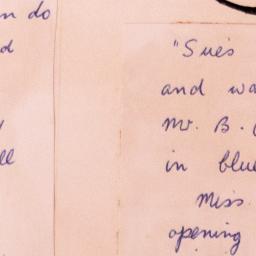 n do
d
ll
"Sue's
and wa
Mr. B.
in blue
Miss.
opening